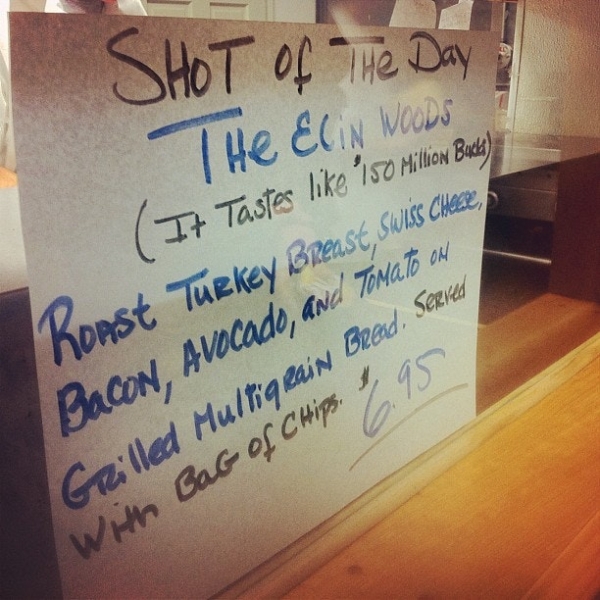 SHOT of THE Day
THE ELIN WOODS
(IT TASTES like $150 Million Bucks)
ROAST TURKEY BREAST, SWISS CHEESE,
BACON, AVOCADO, AND TOMATO ON
GRilled MultigRAIN BREAD. SERVED
WITH BAG OF CHIPS. $6.95